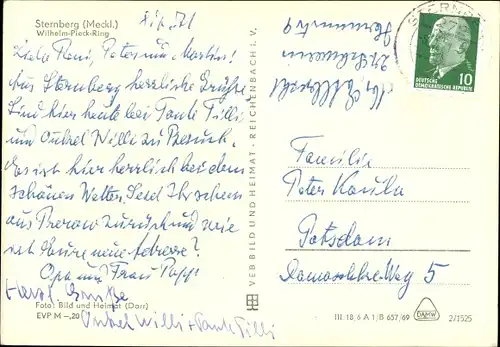 Sternberg (Meckl.)
Wilhelm-Pieck-Ring
Liebe Reni, Peter und Martin!
Aus Sternberg herzliche Grüße
Sind hier heute bei Tante Tilli
und Onkel Willi zu Besuch.
Es ist hier herrlich bei dem
schönen Wetter. Seid Ihr schon
aus Prerow zurück und wie
ist Eure neue Adresse?
Opa und Frau
Herzl. Grüße
Foto: Bild und Heimat (Darr)
EVP M –,20
Onkel Willi + Tante Tilli
VEB BILD UND HEIMAT · REICHENBACH i. V.
27 Schwerin
DEUTSCHE
DEMOKRATISCHE REPUBLIK
10
Familie
Peter
Potsdam
Damaschke-Weg 5
III/18/6 A 1/B 657/69
DEWAG
2/1525